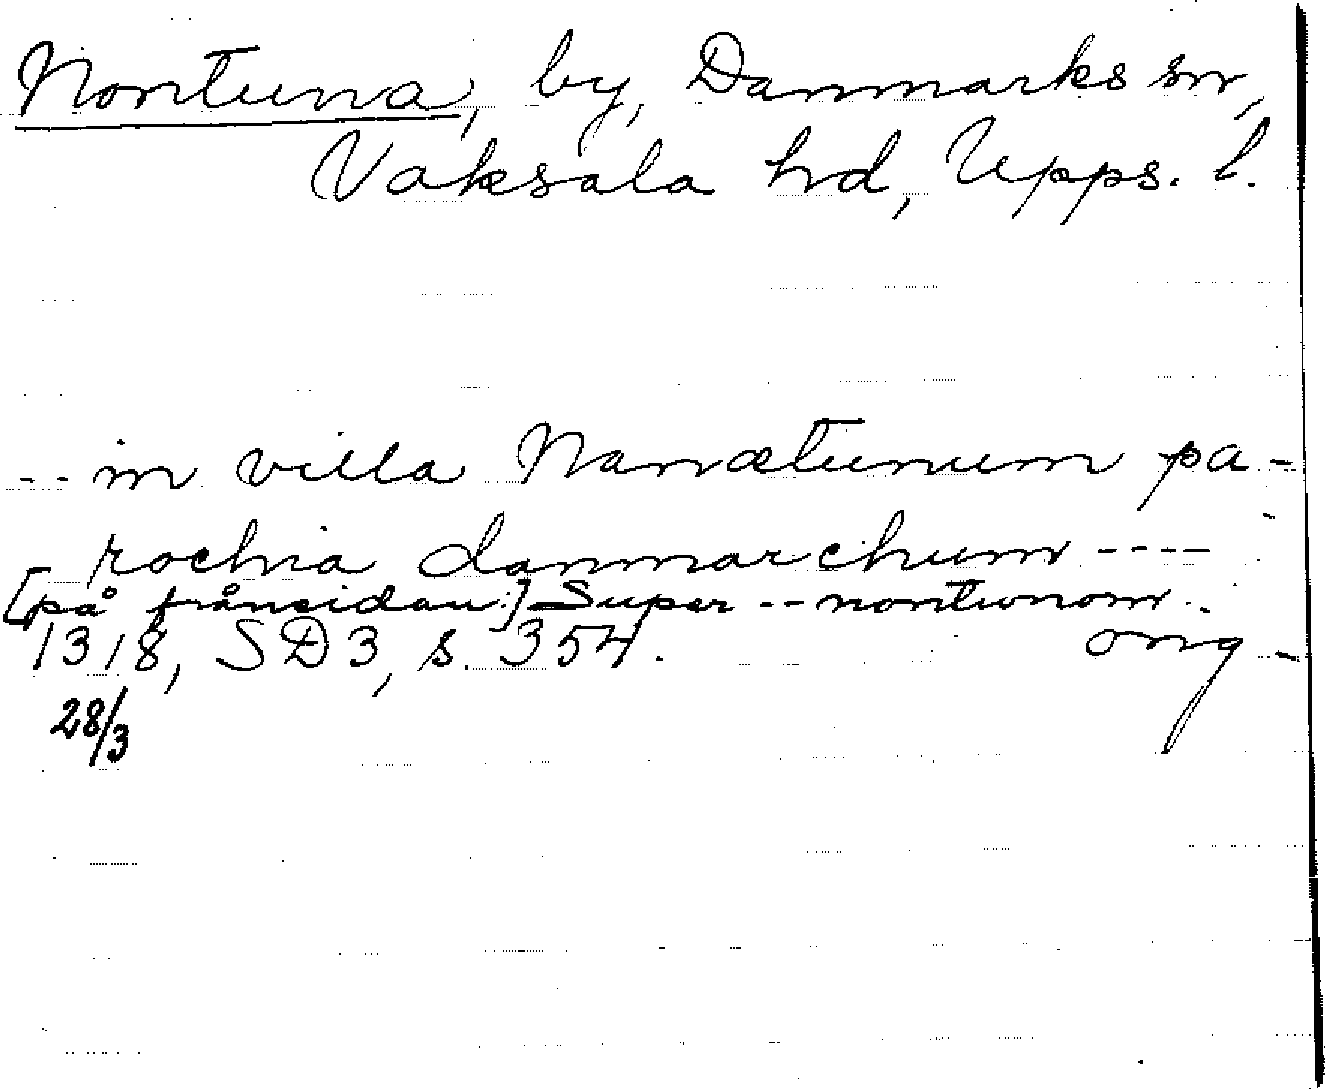 Nontuna, by, Danmarks sn,
Vaksala hd, Upps. l.
-- in villa Nanætunum pa-
rochia danmarchum ----
[på frånsidan:] Super -- nontunom..
1318, SD3, s. 354. org-
28/3